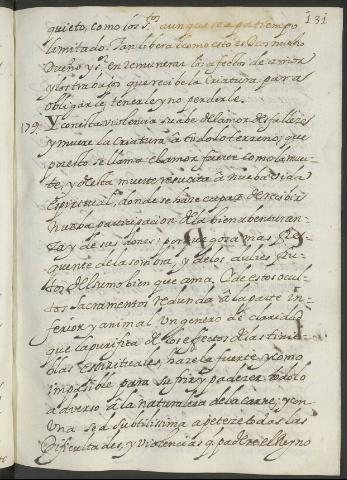 131
quieto, como los S.tos aunque sea por tiempo
lamitado. Tan liberal como esto es Dios nuestro
Dueño y S.r en remunerar los afectos de amor
y los trabajos que recibe la Criatura para
obligarle, tenerle, y no perderle.
179. Y con esta violencia suabe del amor desfalleze
y muere la Criatura â todo lo terreno; que
por esto se llama el amor fuerte como la mue-
te; y desta muerte resucita â nueba vida
Espiritual, donde se haze capaz de recibir
nueba participacion de la bienabenturan-
za, y de sus dones; porque goza mas fre-
quente de la sombra, y de los dulces fru-
tos del sumo bien que ama. O de estos ocul-
tos Sacramentos redunda â la parte in-
ferior y animal un genero de claridad
que la purifica de los efectos de las tinie-
blas Espirituales, haze la fuerte, y como
impasible para sufrir y padezer todo lo
adverso â la naturaleza de la carne; y con
una sed subtilissima apeteze todas las
dificultades, y violencias q. padeze el Reyno